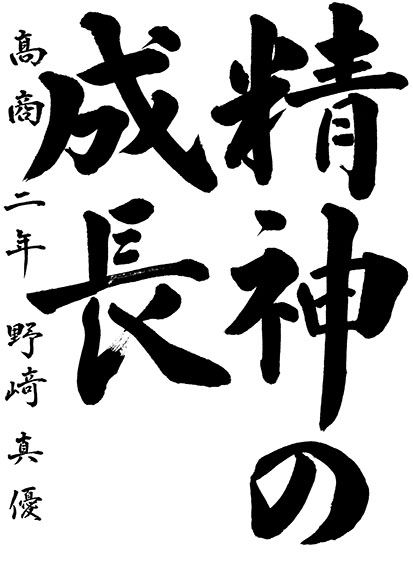 精神の
成長
髙商二年野﨑真優